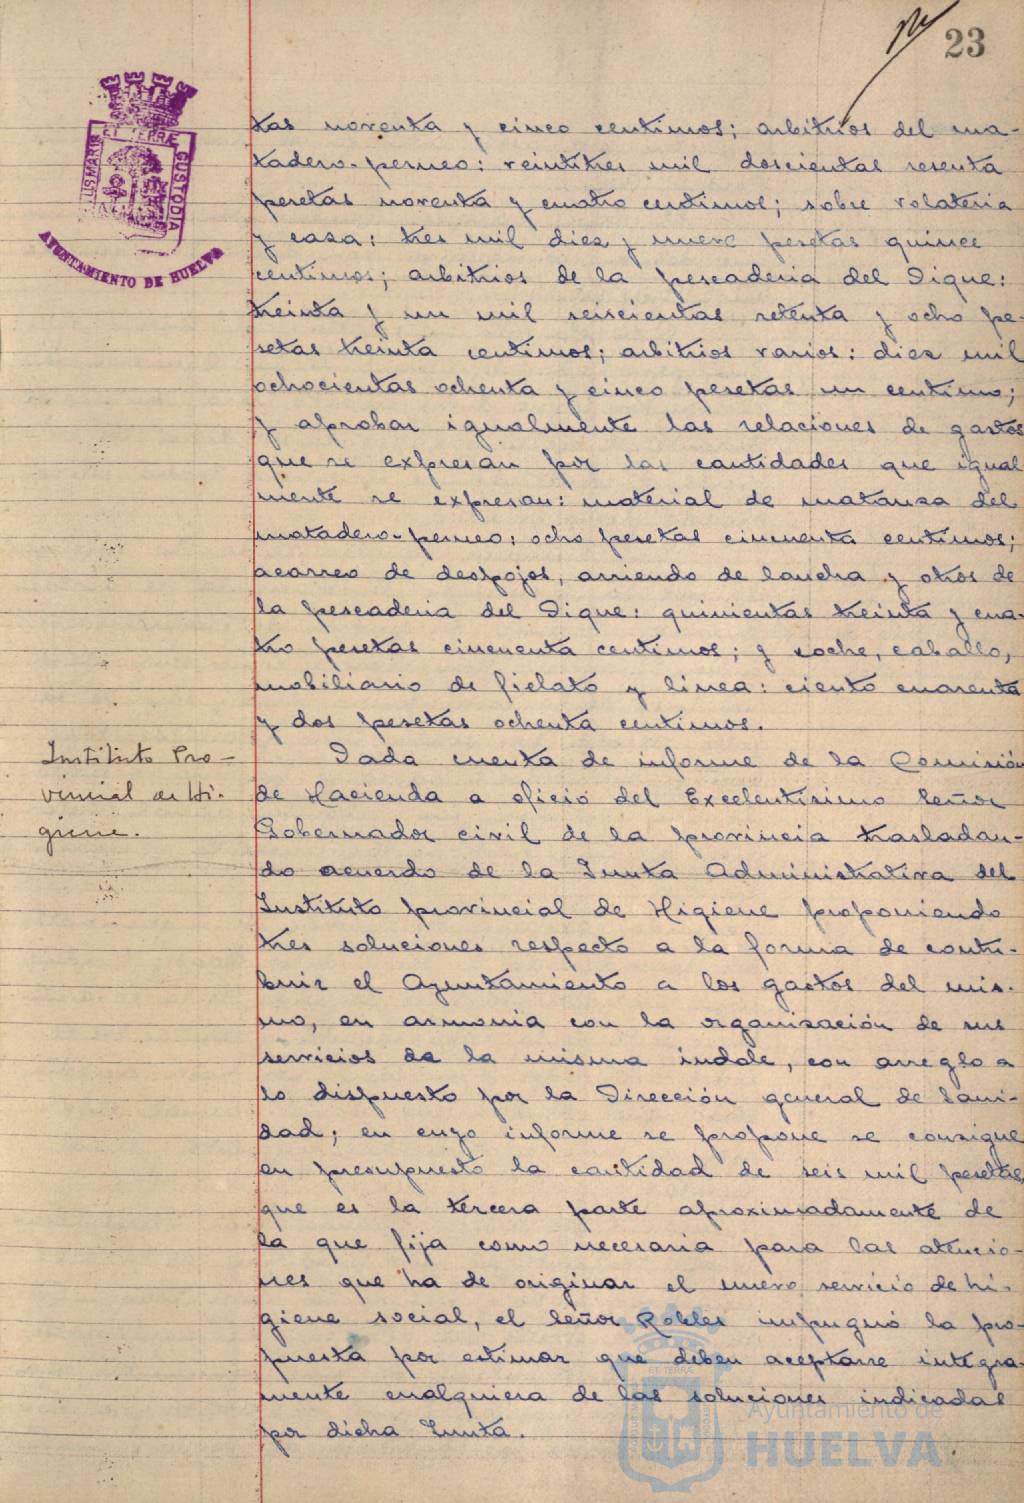 23
tas noventa y cinco centimos; arbitrios del ma-
tadero-perneo: veintitres mil doscientas sesenta
pesetas noventa y cuatro centimos; sobre volateria
y caza: tres mil diez y nueve pesetas quince
centimos; arbitrios de la pescaderia del Dique:
treinta y un mil seiscientas setenta y ocho pe-
setas treinta centimos; arbitrios varios: diez mil
ochocientas ochenta y cinco pesetas un centimo;
y aprobar igualmente las relaciones de gastos
que se expresan por las cantidades que igual
mente se expresan: material de matanza del
matadero-perneo: ocho pesetas cincuenta centimos;
acarreo de despojos, arriendo de lancha y otros de
la pescaderia del Dique: quinientas treinta y cua-
tro pesetas cincuenta centimos; y coche, caballo,
mobiliario de fielato y linea: ciento cuarenta
y dos pesetas ochenta centimos.
Instituto Pro-
vincial de Hi-
giene.
Dada cuenta de informe de la Comisión
de Hacienda a oficio del Excelentisimo Señor
Gobernador civil de la provincia trasladan-
do acuerdo de la Junta Administrativa del
Instituto provincial de Higiene proponiendo
tres soluciones respecto a la forma de contri-
buir el Ayuntamiento a los gastos del mis-
mo, en armonia con la organización de sus
servicios de la misma indole, con arreglo a
lo dispuesto por la Dirección general de Sani-
dad; en cuyo informe se propone se consigne
en presupuesto la cantidad de seis mil pesetas
que es la tercera parte aproximadamente de
la que fija como necesaria para las atencio-
nes que ha de originar el nuevo servicio de hi-
giene social, el Señor Robles impugnó la pro-
puesta por estimar que deben aceptarse integra-
mente cualquiera de las soluciones indicadas
por dicha Junta.
US MARIS
CUSTODIA
AYUNTAMIENTO DE HUELVA
Ayuntamiento de
HUELVA